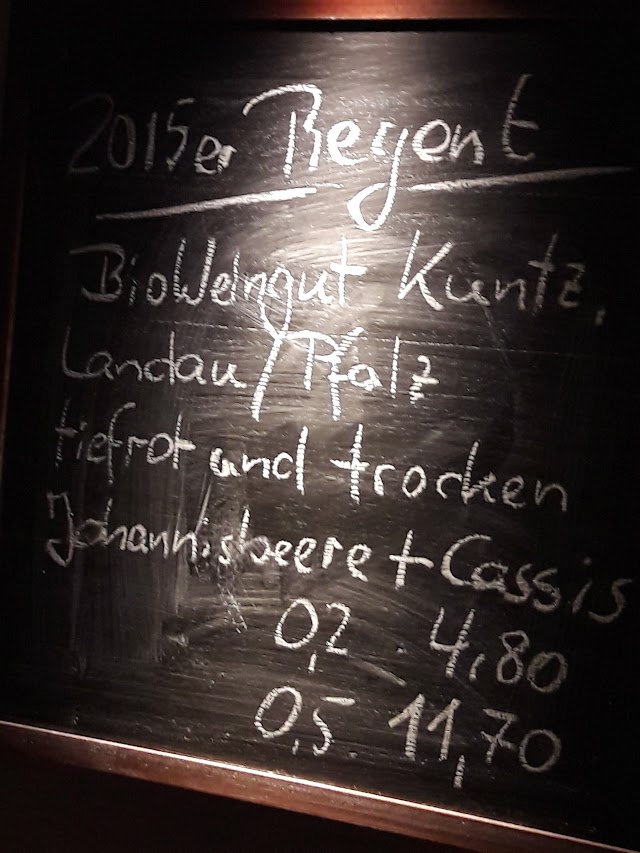 2015er Regent
BioWeingut Kuntz,
Landau/Pfalz
tiefrot und trocken
Johannisbeere + Cassis
0,2 4,80
0,5 11,70